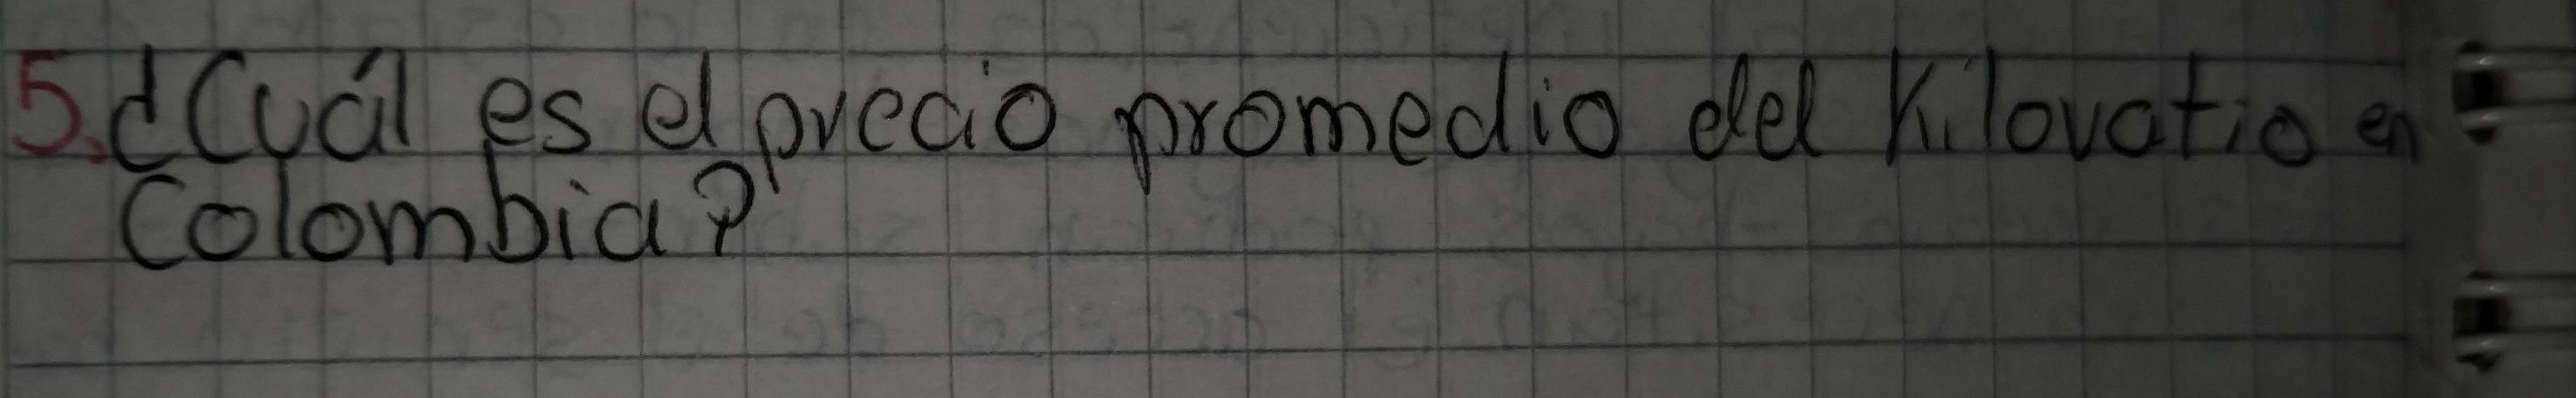 5. ¿Cuál es el precio promedio del Kilovatio en
Colombia?